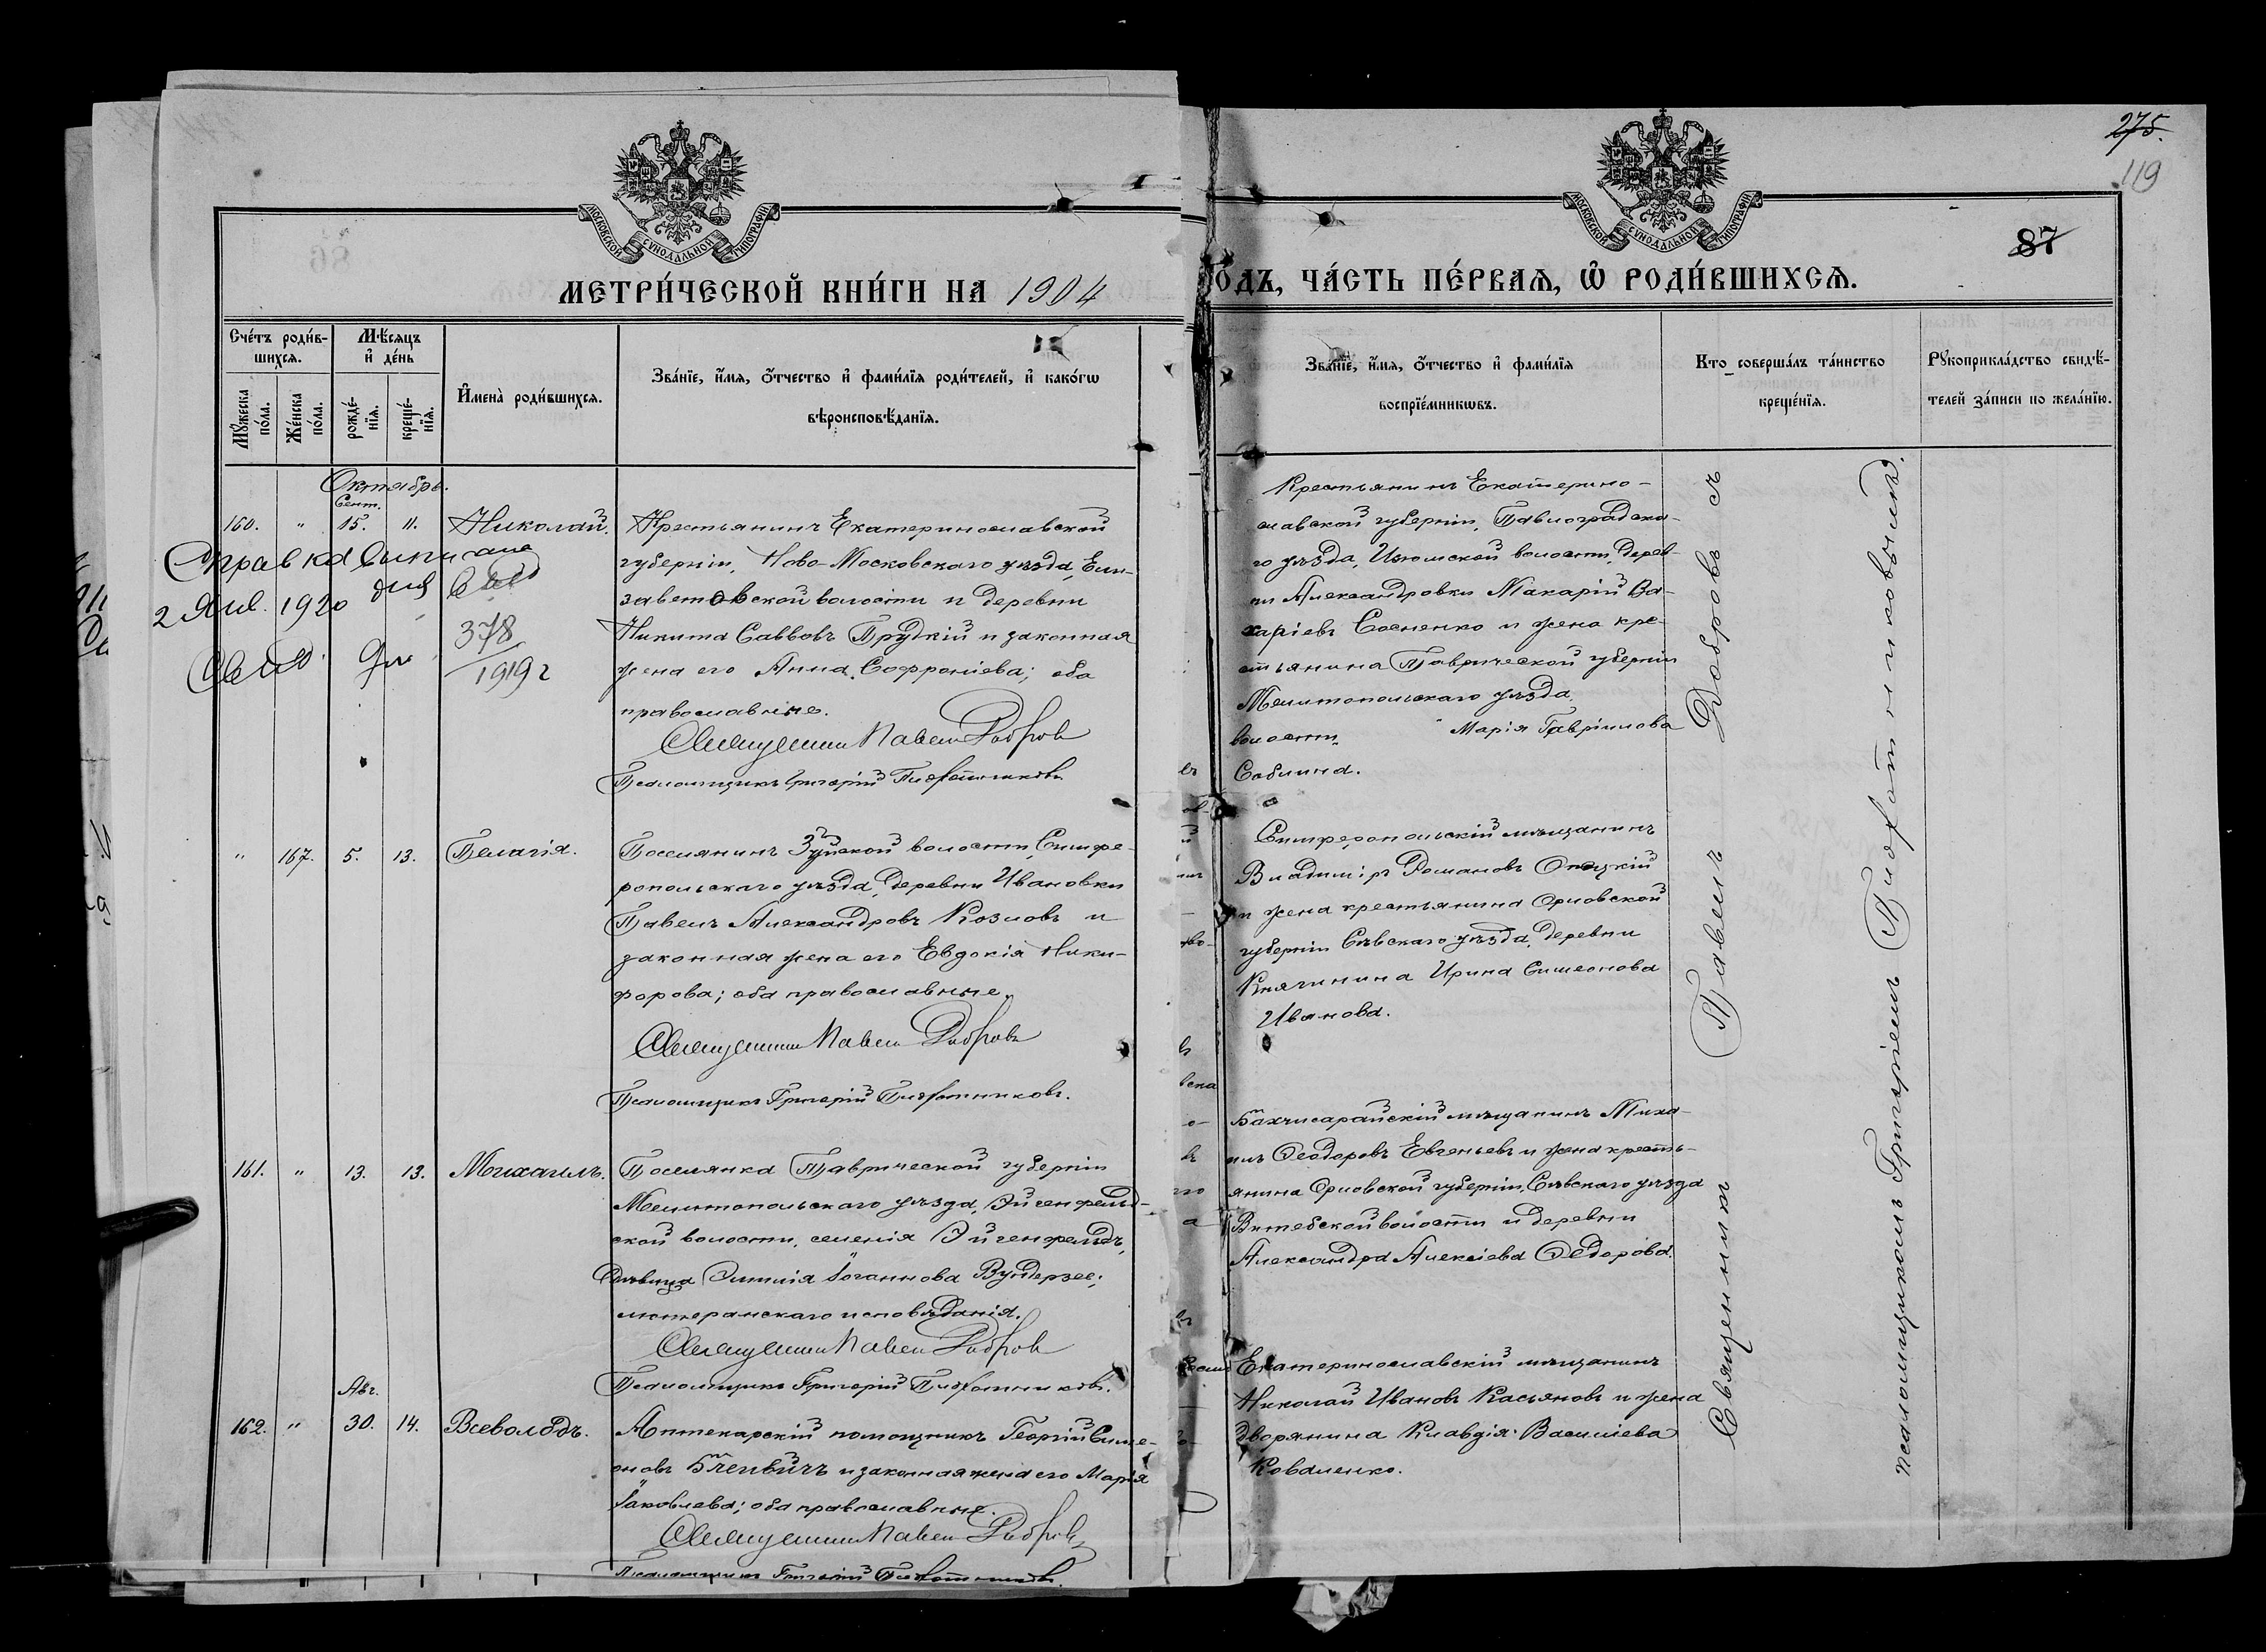 275.
119
87
МОСКОВСКОЙ СѴНОДАЛЬНОЙ ТИПОГРАФІИ
МОСКОВСКОЙ СѴНОДАЛЬНОЙ ТИПОГРАФІИ
МЕТРИ́ЧЕСКОЙ КНИ́ГИ НА 1904
ОДЪ, ЧА́СТЬ ПЕ́РВАѦ, Ѡ҆ РОДИ́ВШИХСѦ.
Сче́тъ роди́в-
шихсѧ.
Мꙋ́жеска по́ла.
Же́нска по́ла.
Мѣ́сѧцъ
и҆ де́нь
рожде́-
нїѧ.
креще́-
нїѧ.
И҆мена̀ роди́вшихсѧ.
Зва́нїе, и҆́мѧ, ѻ҆́тчество и҆ фами́лїѧ роди́телей, и҆ како́гѡ
вѣроисповѣ́данїѧ.
Зва́нїе, и҆́мѧ, ѻ҆́тчество и҆ фами́лїѧ
воспрїе́мникѡвъ.
Кто̀ соверша́лъ та́инство
креще́нїѧ.
Рꙋкоприкла́дство свидѣ́-
телей за́писи по жела́нїю.
Октябрь.
Сент.
160. " 15. 11. Николай.
Крестьянинъ Екатеринославской
губерніи, Ново-Московскаго уѣзда, Ели-
заветовской волости и деревни
Никита Савовъ Прудкій и законная
жена его Анна Софроніева; оба
православные.
Священникъ Павелъ Добровъ
Псаломщикъ Григорій Плохотниковъ
Справка выписана
2 Янв. 1920 для
378
1919 г
Крестьянинъ Екатерино-
славской губерніи, Павлоградска-
го уѣзда, Изюмской волости, дерев-
ни Александровки Макарій За-
харіевъ Сосненко и жена кре-
стьянина Таврической губерніи
Мелитопольскаго уѣзда
волости Марія Гавріилова
Саблина.
" 167. 5. 13. Пелагія.
Поселянинъ Зуйской волости, Симфе-
ропольскаго уѣзда, деревни Ивановки
Павелъ Александровъ Козловъ и
законная жена его Евдокія Ники-
форова; оба православные.
Священникъ Павелъ Добровъ
Псаломщикъ Григорій Плохотниковъ.
Симферопольскій мѣщанинъ
Владиміръ Романовъ
и жена крестьянина Орловской
губерніи Сѣвскаго уѣзда, деревни
Княгинина Ирина Симеонова
Иванова.
161. " 13. 13. Михаилъ.
Поселянка Таврической губерніи
Мелитопольскаго уѣзда, Эйгенфельд-
ской волости, селенія Эйгенфельдъ,
дѣвица Эмилія Іоганнова Вундерзее;
лютеранскаго исповѣданія.
Священникъ Павелъ Добровъ
Псаломщикъ Григорій Плохотниковъ.
Бахчисарайскій мѣщанинъ Миха-
илъ Ѳеодоровъ Евгеньевъ и жена кресть-
янина Орловской губерніи, Сѣвскаго уѣзда
Витебской волости и деревни
Александра Алексіева Ѳедорова.
Авг.
162. " 30. 14. Всеволодъ.
Аптекарскій помощникъ Георгій Симе-
оновъ и законная жена его Марія
Іаковлева; оба православные.
Священникъ Павелъ Добровъ
Псаломщикъ Григорій Плохотниковъ.
Екатеринославскій мѣщанинъ
Николай Ивановъ Касьяновъ и жена
дворянина Клавдія Васильева
Коваленко.
Священникъ Павелъ Добровъ съ
псаломщикомъ Григоріемъ Плохотниковымъ.